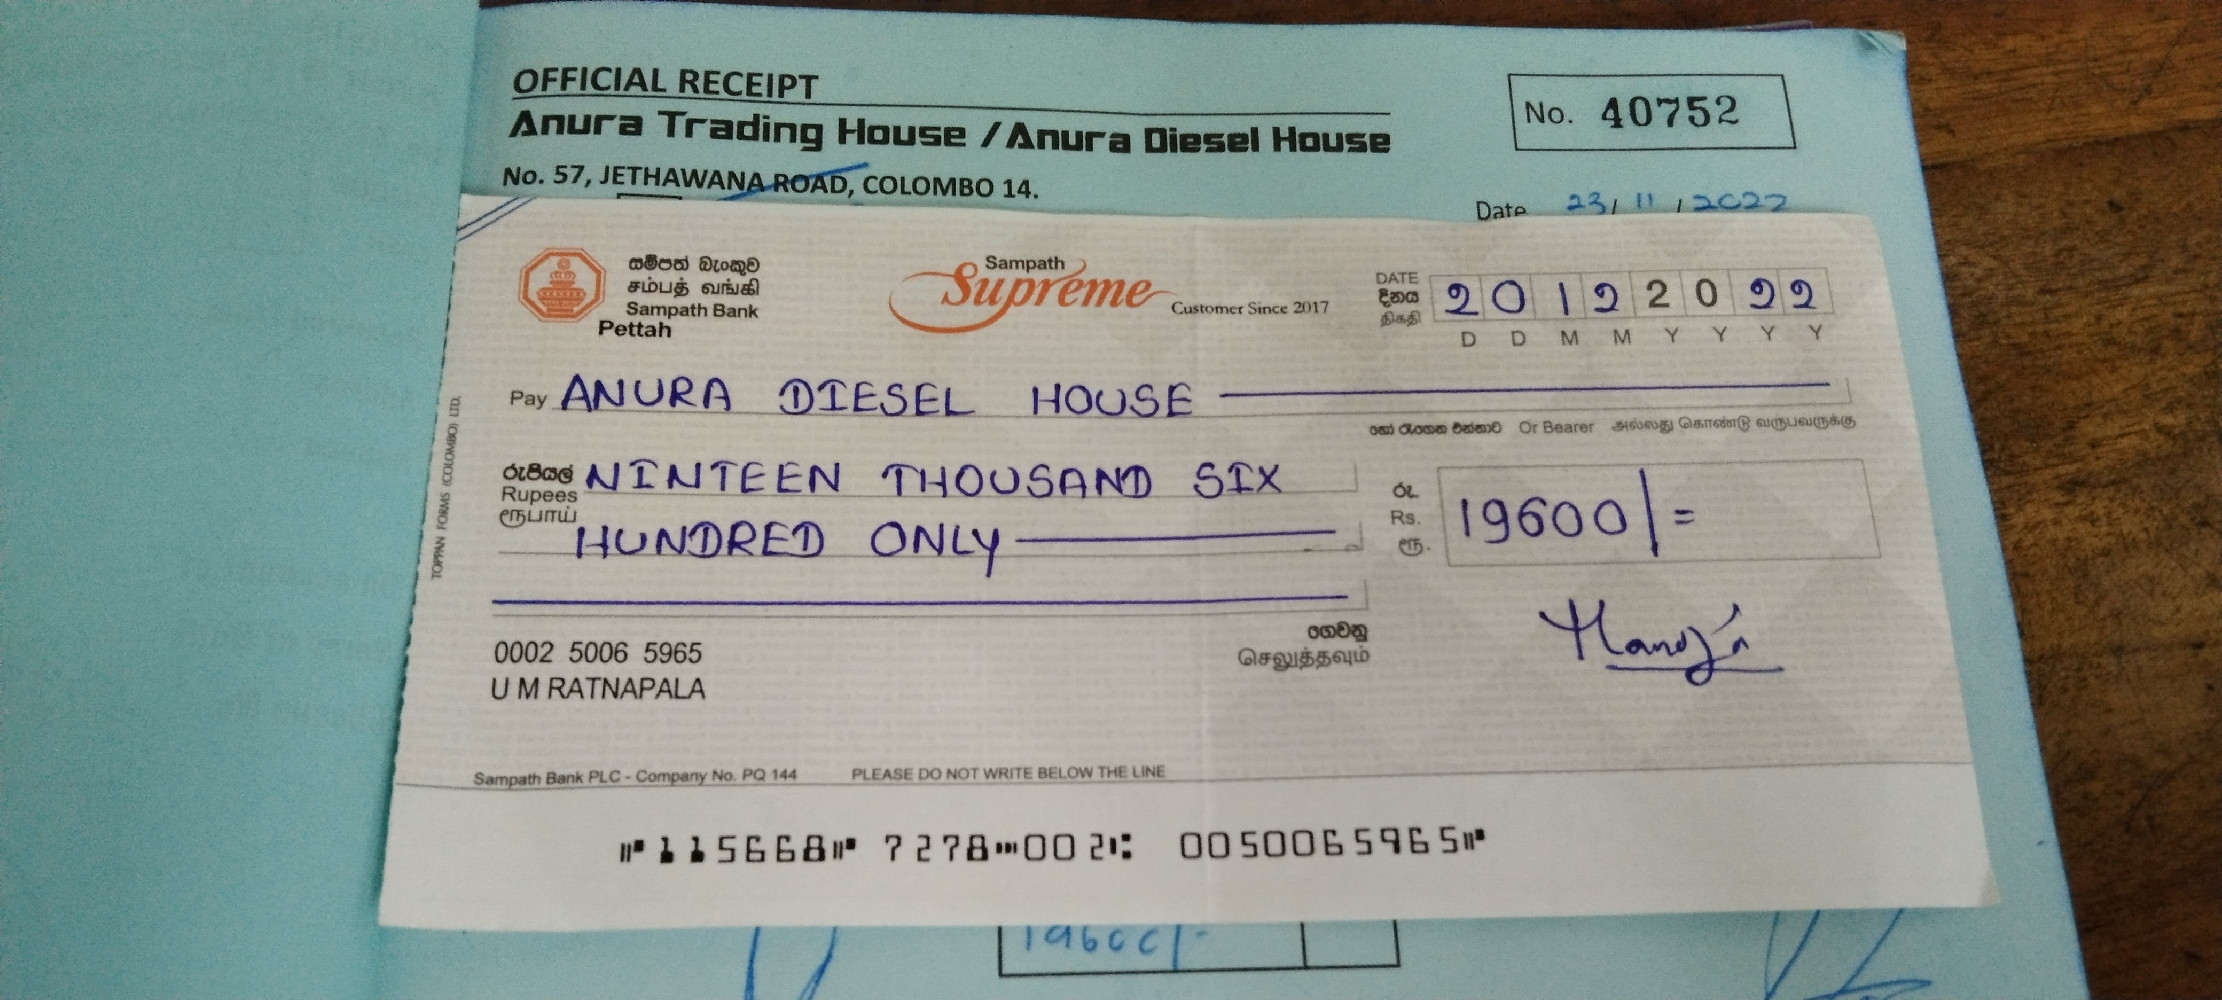 OFFICIAL RECEIPT
Anura Trading House / Anura Diesel House
No. 57, JETHAWANA ROAD, COLOMBO 14.
No. 40752
Date 23/ 11 / 2022
සම්පත් බැංකුව
சம்பத் வங்கி
Sampath Bank
Pettah
Sampath
Supreme
Customer Since 2017
DATE
දිනය
திகதி
2 0 1 2 2 0 2 2
D D M M Y Y Y Y
Pay ANURA DIESEL HOUSE
හෝ රැගෙන එන්නාට Or Bearer அல்லது கொண்டு வருபவருக்கு
රුපියල්
Rupees
ரூபாய்
NINTEEN THOUSAND SIX
HUNDRED ONLY
රු.
Rs.
ரூ.
19600/=
ගෙවනු
செலுத்தவும்
0002 5006 5965
U M RATNAPALA
TOPPAN FORMS (COLOMBO) LTD.
Sampath Bank PLC - Company No. PQ 144 PLEASE DO NOT WRITE BELOW THE LINE
⑈115668⑈ 7278⑉002⑆ 0050065965⑈
19600/-